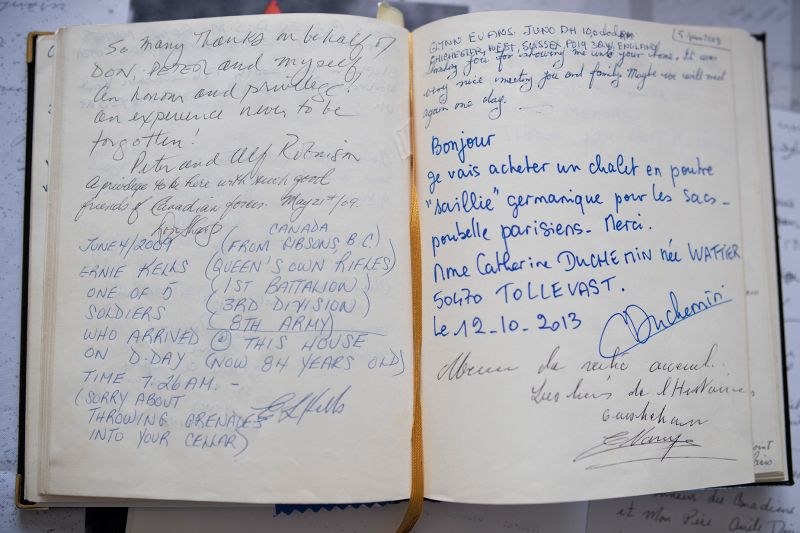 So many thanks on behalf of
DON, PETER and myself.
An honour and privilege!
an experience never to be
forgotten!
Petr and Alf
A privilege to be here with such good
friends of Canadian forces. May 21st/09.
JUNE 4/2009
ERNIE KELLS
ONE OF 5
SOLDIERS
WHO ARRIVED @ THIS HOUSE
ON D-DAY. (NOW 84 YEARS OLD)
TIME 7.26 AM. —
(SORRY ABOUT
THROWING GRENADES
INTO YOUR CELLAR)
CANADA
(FROM GIBSONS, B.C)
(QUEEN'S OWN RIFLES)
(1ST BATTALION)
(3RD DIVISION)
(8TH ARMY)
GLYNN EVANS. JUNO DH
CHICHESTER, WEST, SUSSEX, PO19 3BW, ENGLAND
thanking you for showing me into your home. It was
very nice meeting you and family. Maybe we will meet
again one day.
Bonjour
je vais acheter un chalet en poutre
"saillie" germanique pour les sacs-
poubelle parisiens. Merci.
Mme Catherine DUCHEMIN née WATTIER
50470 TOLLEVAST.
Le 12-10-2013
Duchemin
de l'Histoire
et Mon Père